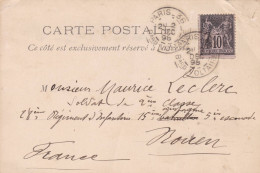 CARTE POSTALE
Ce côté est exclusivement réservé à l'adresse
10
Monsieur Maurice Leclerc
Soldat de 2ème Classe
28ème Régiment d'Infanterie 15ème compagnie 5ème escouade
Rouen
France